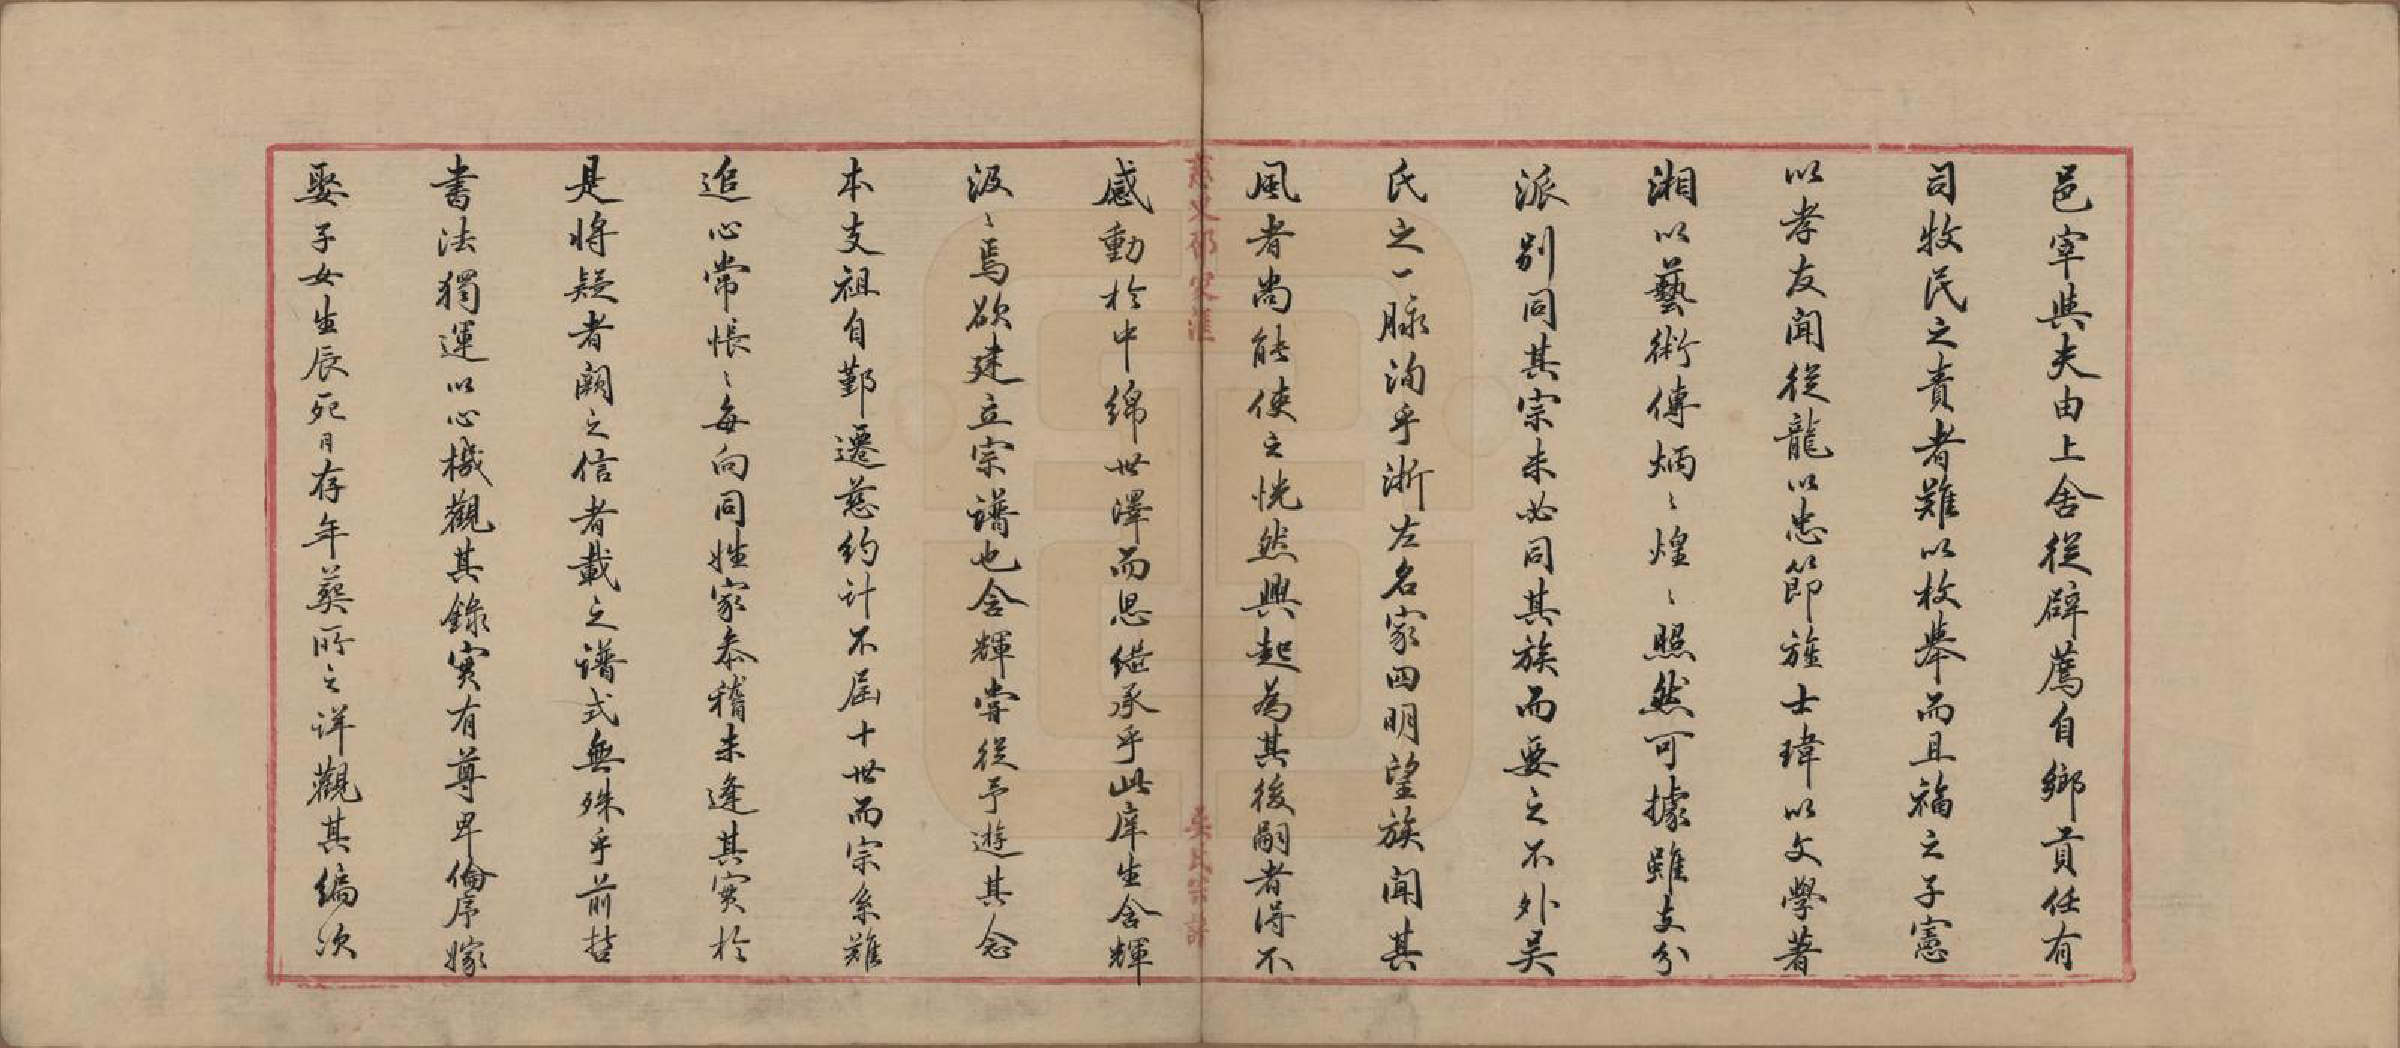 邑宰典夫由上舍從辟薦自鄉貢任有
司牧民之責者難以枚舉而且福之子憲
以孝友聞從龍以忠節旌士瑋以文學著
湘以藝術傳炳〻煌〻照然可據雖支分
派別同其宗未必同其族而要之不外吴
氏之一脉洵乎浙左名家四明望族聞其
風者尚能使之恍然興起為其後嗣者得不
感動於中綿世澤而思繼承乎此庠生含輝
汲〻焉欲建立宗譜也含輝嘗從予遊其念
本支祖自鄞遷慈約計不屆十世而宗系難
追心常悵〻每向同姓家叅稽未逢其實於
是將疑者闕之信者載之譜式無殊乎前喆
書法獨運以心機觀其錄實有尊卑倫序嫁
娶子女生辰死日存年葬所之詳觀其编次
吴氏宗譜